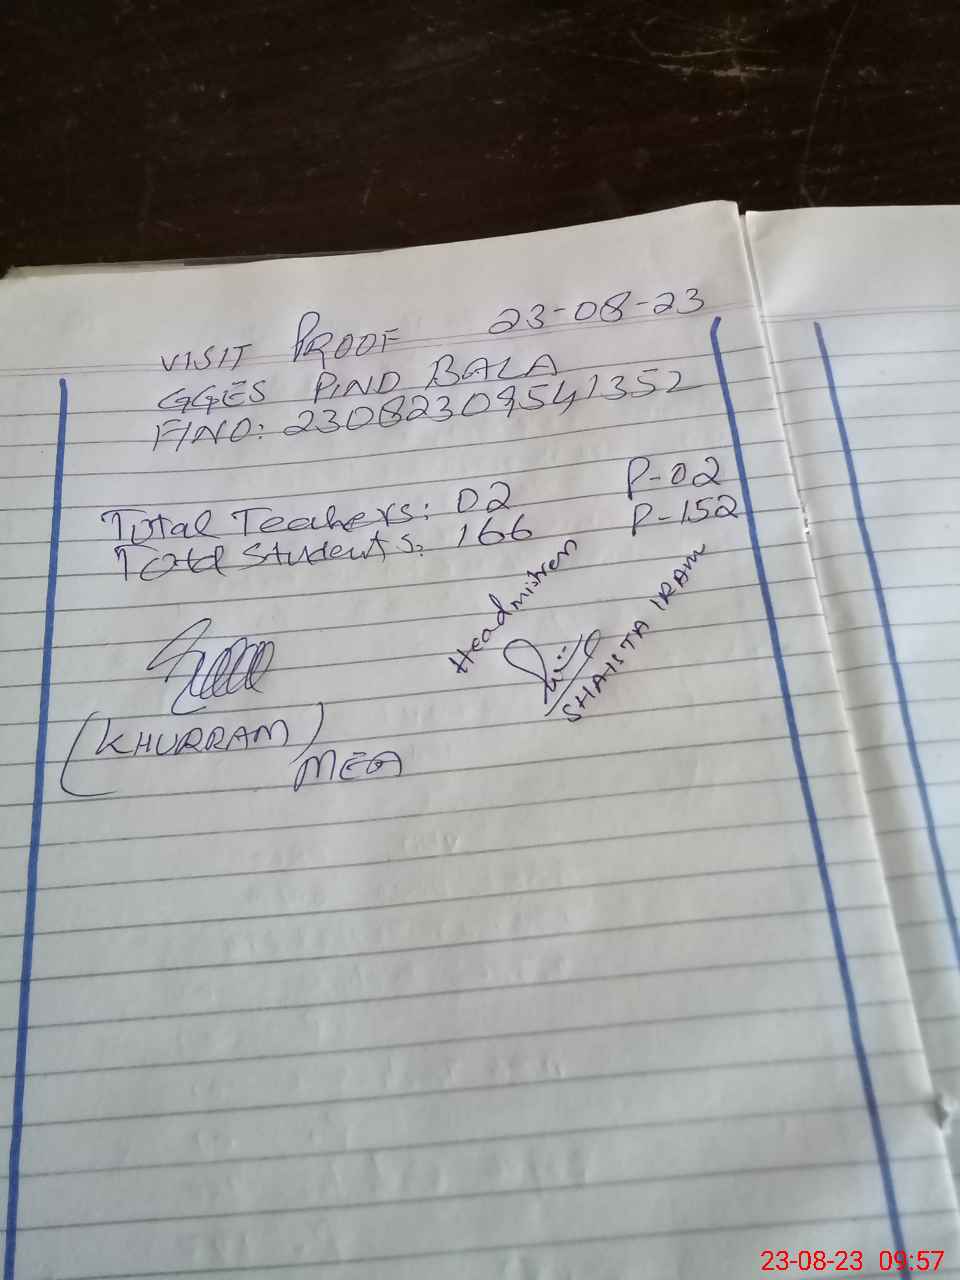 VISIT PROOF 23-08-23
GGES PIND BALA
F/NO: 230823095541352
Total Teahers: 02 P-02
Total Students: 166 P-152
Headmistress
SHAISTA IRAM
(KHURRAM)
MEA
23-08-23 09:57